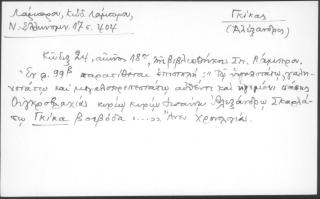 Λάμπρου, Κώδ. Λάμπρου,
Ν. Ἑλληνομν. 17 σ. 404
Γκίκας
(Ἀλέξανδρος)
Κῶδιξ 24, αἰῶνος 18ου, τῆς βιβλιοθήκης Σπ. Λάμπρου.
Ἐν φ. 99β παρατίθεται ἐπιστολή: "Τῷ ὑψηλοτάτῳ, γαλη-
νοτάτῳ καὶ μεγαλοπρεπεστάτῳ αὐθέντι καὶ ἡγεμόνι πάσης
Οὐγκροβλαχίας κυρίῳ κυρίῳ Ἰωάννῃ Ἀλεξάνδρῳ Σκαρλά-
τῳ Γκίκᾳ Βοεβόδᾳ ..... Ἄνευ χρονολογίας.